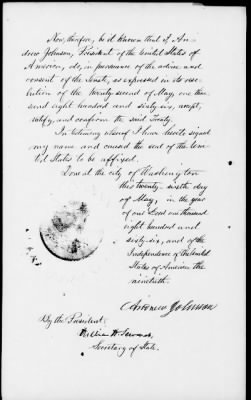 Now, therefore, be it known that I, An-
drew Johnson, President of the United States of
America, do, in pursuance of the advice and
consent of the Senate, as expressed in its reso-
lution of the twenty-second of May, one thou
sand eight hundred and sixty-six, accept,
ratify, and confirm the said Treaty.
In testimony whereof I have hereto signed
my name and caused the seal of the Uni-
ted States to be affixed.
Done at the city of Washington
this twenty-sixth day
of May, in the year
of our Lord one thousand
eight hundred and
sixty-six, and of the
Independence of the United
States of America the
ninetieth.
Andrew Johnson
By the President:
William H. Seward,
Secretary of State.